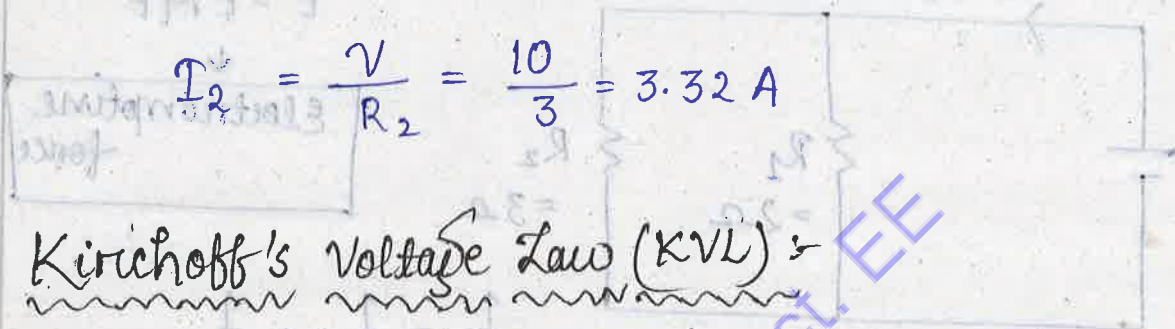 I₂ = V / R₂ = 10 / 3 = 3.32 A
Kirichoff's Voltage Law (KVL) :-
ct. EE